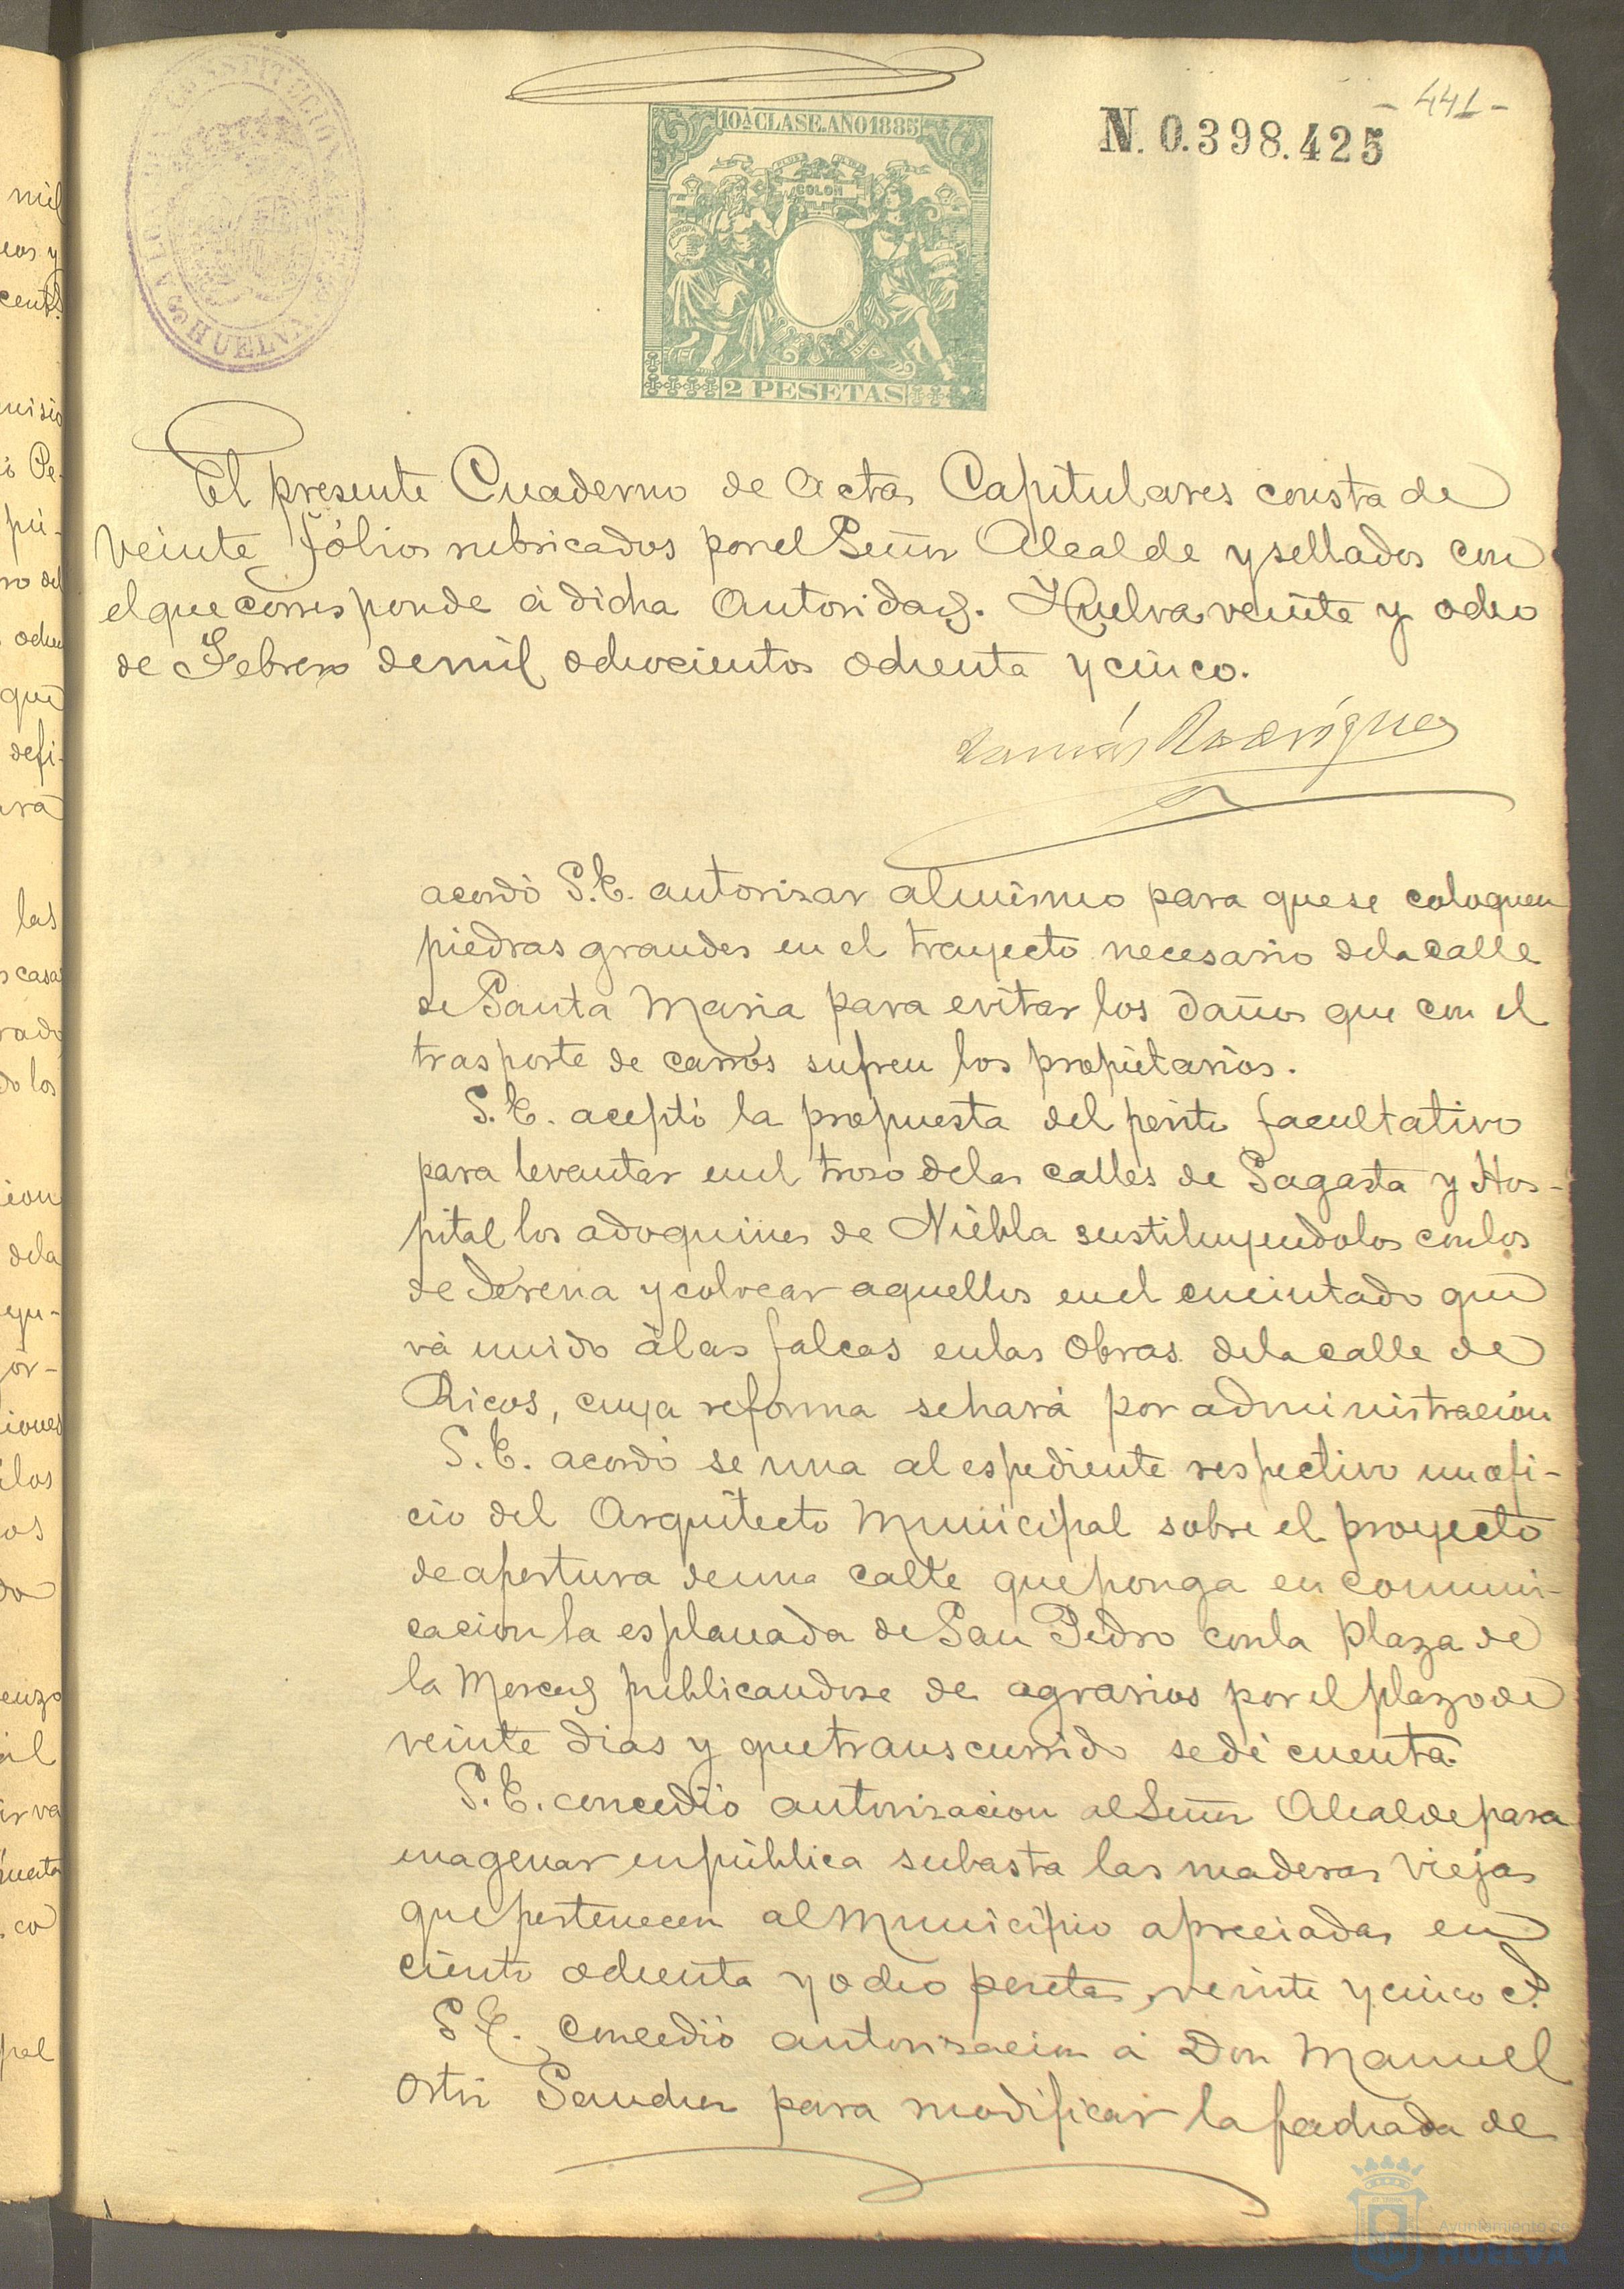 - 441 -
10ª CLASE. AÑO 1885
N. 0.398.425
COLON
2 PESETAS
CONSTITUCION
HUELVA
El presente Cuaderno de Actas Capitulares consta de
veinte fólios rubricados por el Señor Alcalde y sellados con
el que corresponde á dicha Autoridad. Huelva veinte y ocho
de Febrero de mil ochocientos ochenta y cinco.
Tomás Rodríguez
acordó S.E. autorizar al mismo para que se coloquen
piedras grandes en el trayecto necesario de la calle
de Santa Maria para evitar los daños que con el
trasporte de carros sufren los propietarios.
S.E. aceptó la propuesta del perito facultativo
para levantar en el troso de las calles de Sagasta y Hos-
pital los adoquines de Niebla sustituyendolos con los
de Gerena y colocar aquellos en el encintado que
vá unido á las falcas en las obras de la calle de
Ricos, cuya reforma se hará por administración
S.E. acordó se una al espediente respectivo un ofi-
cio del Arquitecto Municipal sobre el proyecto
de apertura de una calle que ponga en comuni-
cacion la esplanada de San Pedro con la Plaza de
la Merced publicandose de agravios por el plazo de
veinte dias y que transcurrido se dé cuenta.
S.E. concedió autorizacion al Señor Alcalde para
enagenar en pública subasta las maderas viejas
que pertenecen al Municipio apreciadas en
ciento ochenta y ocho pesetas, veinte y cinco cs.
S.E. concedió autorizacion á Don Manuel
Ortiz Sanchez para modificar la fachada de
Ayuntamiento de
HUELVA